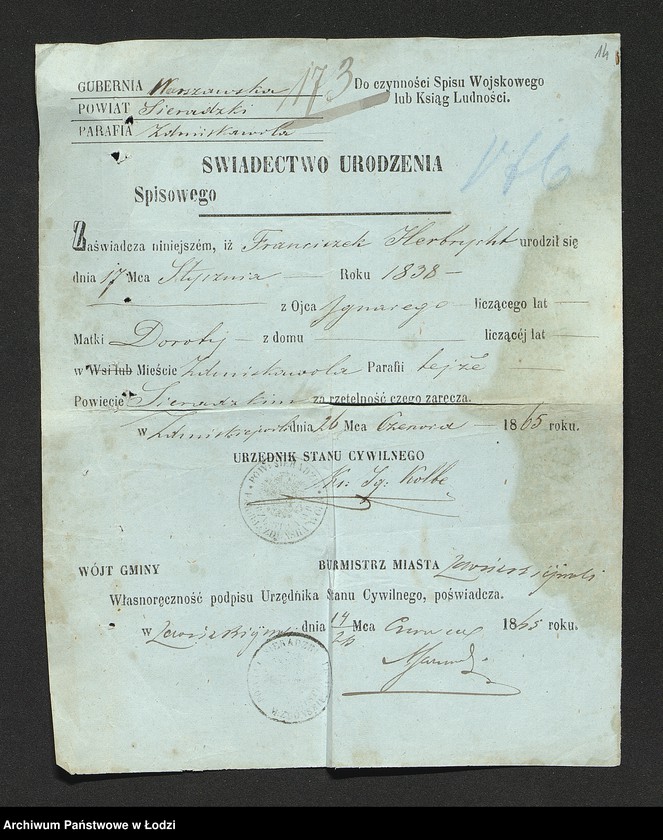 14
GUBERNIA Warszawska 173 Do czynności Spisu Wojskowego
POWIAT Sieradzki lub Ksiąg Ludności.
PARAFIA Zduńskawola
SWIADECTWO URODZENIA
Spisowego
Zaświadcza niniejszém, iż Franciszek Herbrycht urodził się
dnia 17 Mca Stycznia Roku 1838
z Ojca Ignacego liczącego lat
Matki Doroty z domu liczącéj lat
w Wsi lub Mieście Zduńskawola Parafii tejże
Powiecie Sieradzkim za rzetelność czego zaręcza.
w dnia 26 Mca Czerwca 1865 roku.
URZĘDNIK STANU CYWILNEGO
Ks: Ig: Kolbe
WÓJT GMINY BURMISTRZ MIASTA
Własnoręczność podpisu Urzędnika Stanu Cywilnego, poświadcza.
w dnia 14/26 Mca Czerwca 1865 roku.
Archiwum Państwowe w Łodzi